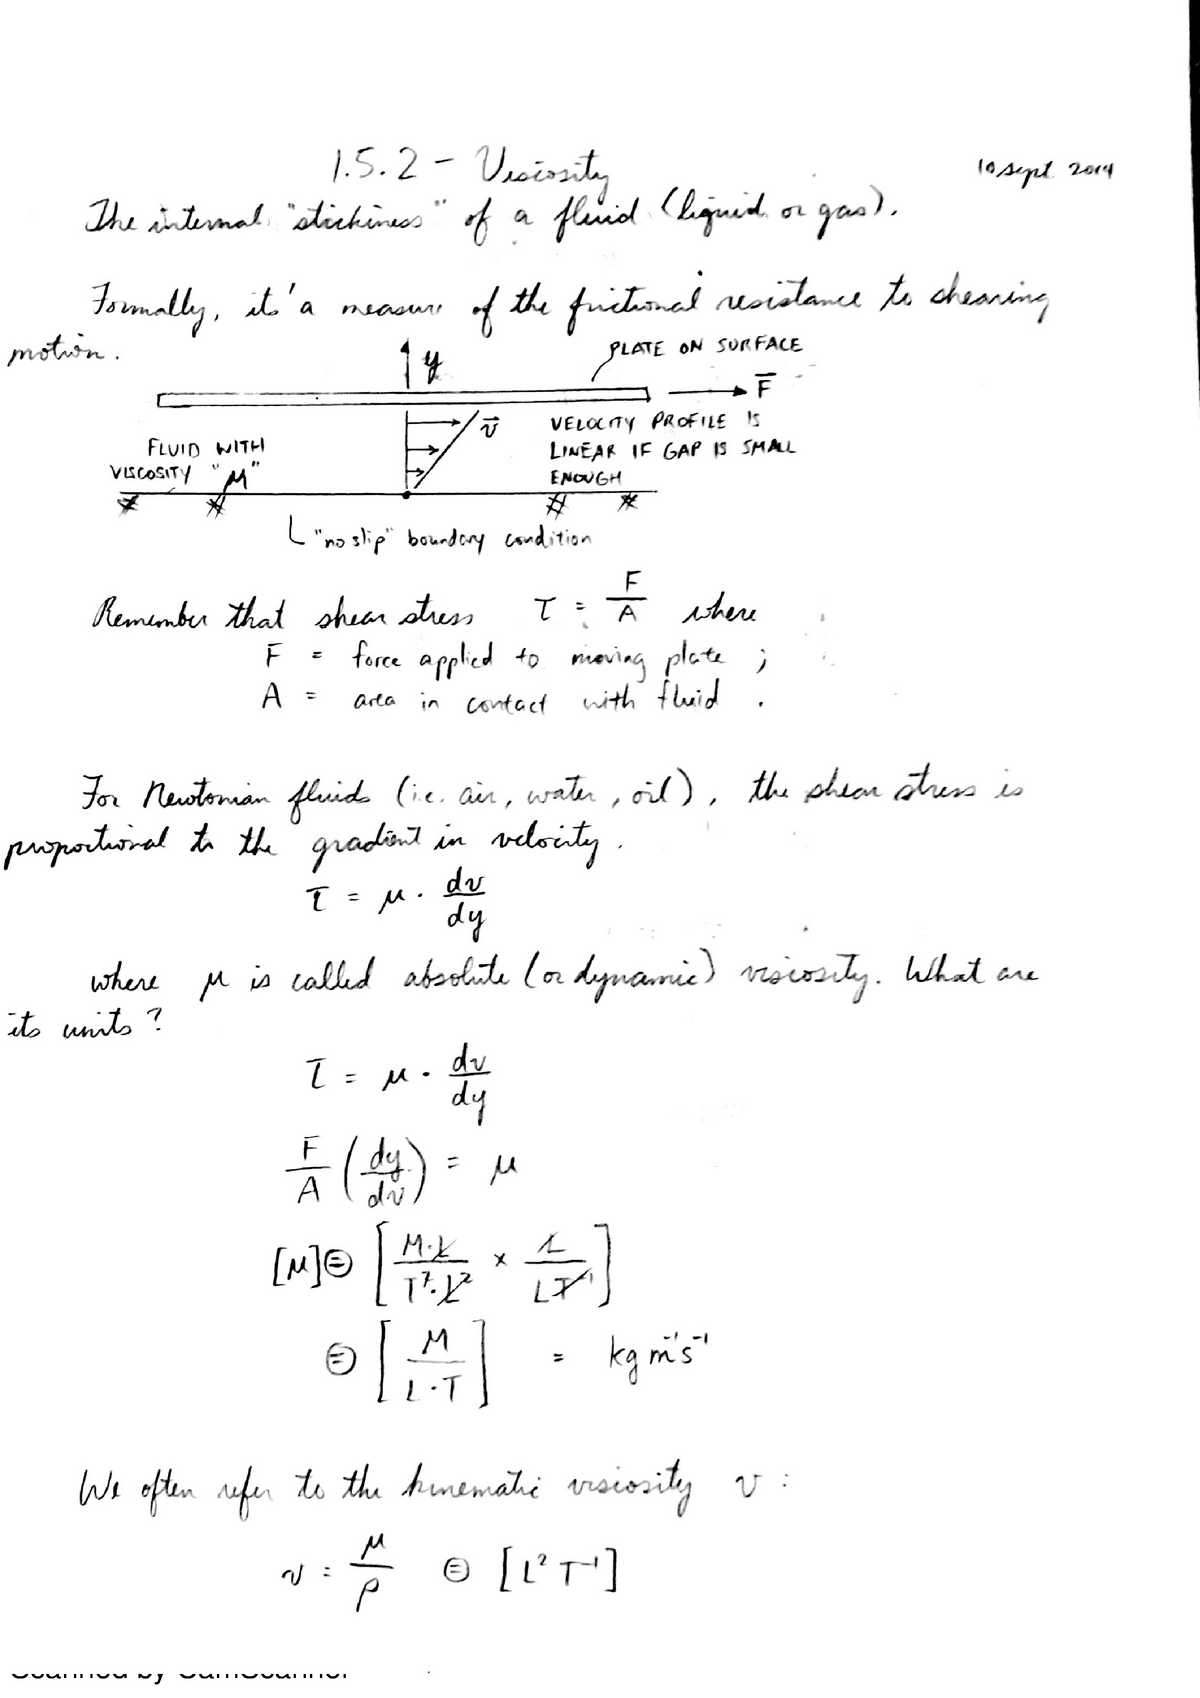 1.5.2 - Viscosity
10 Sept 2014
The internal "stickiness" of a fluid (liquid or gas).
Formally, its' a measure of the frictional resistance to shearing
motion.
PLATE ON SURFACE
y
F̅
v̅
VELOCITY PROFILE IS
LINEAR IF GAP IS SMALL
ENOUGH
FLUID WITH
VISCOSITY "μ"
"no slip" boundary condition
Remember that shear stress τ = F/A where
F = force applied to moving plate ;
A = area in contact with fluid .
For Newtonian fluids (i.e. air, water, oil), the shear stress is
proportional to the gradient in velocity.
τ = μ · dv/dy
where μ is called absolute (or dynamic) viscosity. What are
its units?
τ = μ · dv/dy
F/A (dy/dv) = μ
[μ] ⊜ [M·L/T²·L² × L/LT⁻¹]
⊜ [M/L·T] = kg m⁻¹s⁻¹
We often refer to the kinematic viscosity ν :
ν = μ/ρ ⊜ [L² T⁻¹]
Scanned by CamScanner